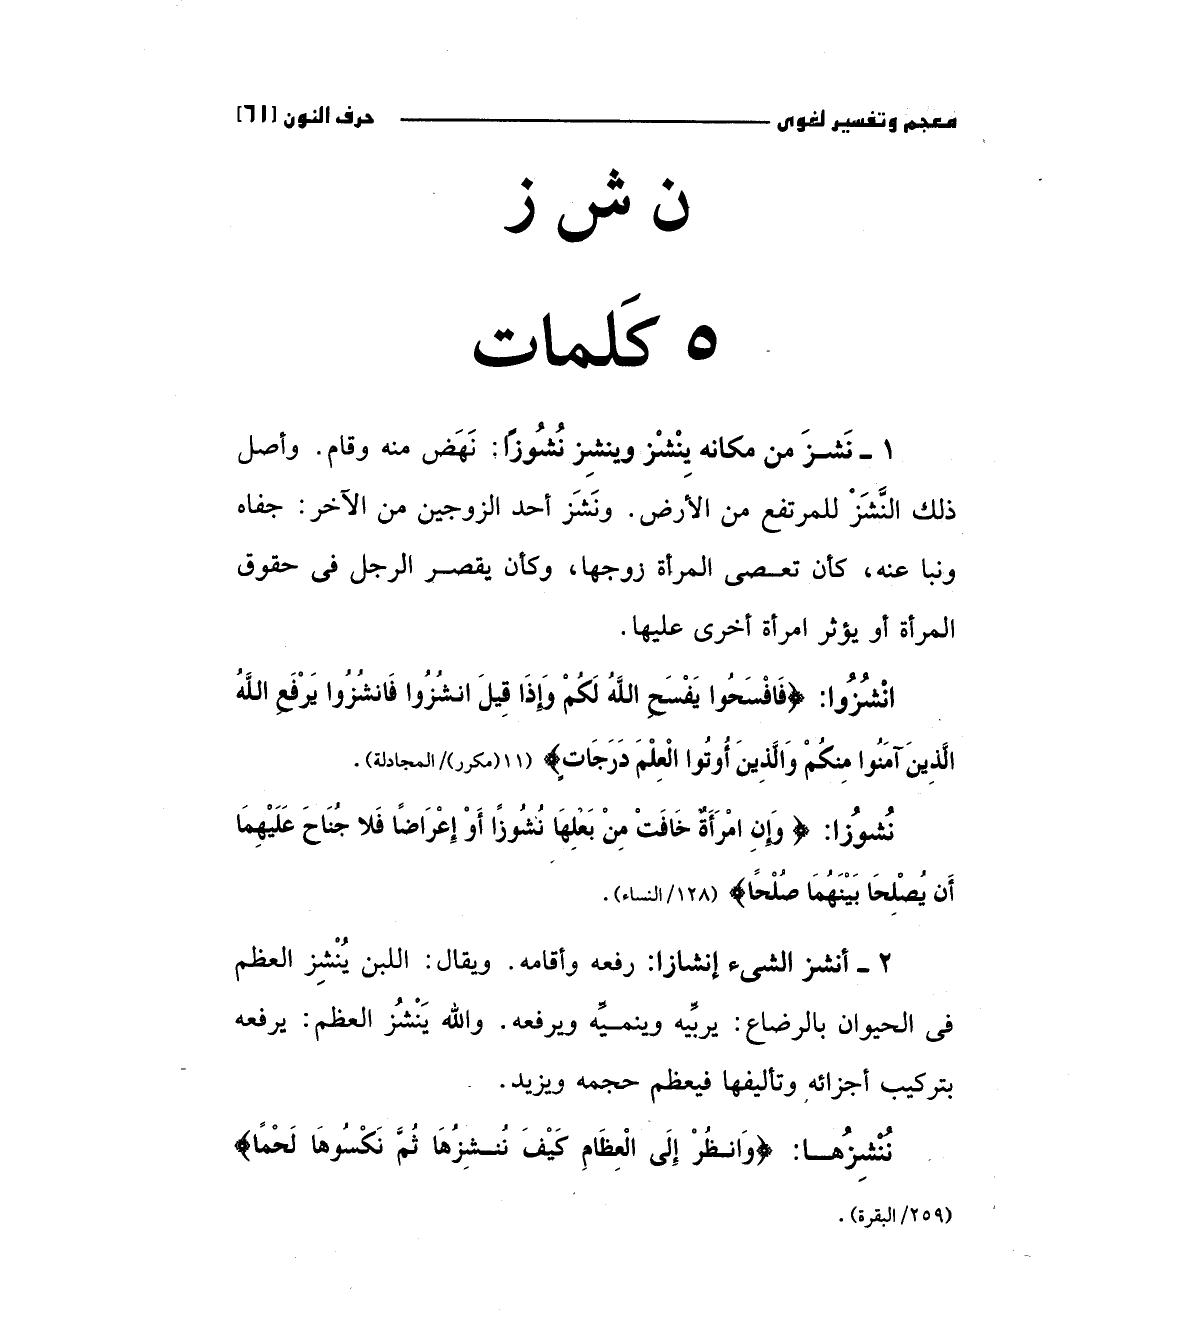 معجم وتفسير لغوى حرف النون [٦١]
ن ش ز
٥ كَلمات
١ ـ نَشـزَ من مكانه ينْشُز وينشِز نُشُوزًا: نَهَض منه وقام. وأصل
ذلك النَّشَزْ للمرتفع من الأرض. ونَشَز أحد الزوجين من الآخر: جفاه
ونبا عنه، كأن تعـصى المرأة زوجها، وكأن يقصـر الرجل فى حقوق
المرأة أو يؤثر امرأة أخرى عليها.
انْشُزُوا: ﴿فَافْسَحُوا يَفْسَحِ اللَّهُ لَكُمْ وَإِذَا قِيلَ انشُزُوا فَانشُزُوا يَرْفَعِ اللَّهُ
الَّذِينَ آمَنُوا مِنكُمْ وَالَّذِينَ أُوتُوا الْعِلْمَ دَرَجَاتٍ﴾ (١١(مكرر)/ المجادلة).
نُشوُزا: ﴿ وَإِنِ امْرَأَةٌ خَافَتْ مِنْ بَعْلِهَا نُشُوزًا أَوْ إِعْرَاضًا فَلا جُنَاحَ عَلَيْهِمَا
أَن يُصْلِحَا بَيْنَهُمَا صُلْحًا﴾ (١٢٨/ النساء).
٢ ـ أنشز الشىء إنشازا: رفعه وأقامه. ويقال: اللبن يُنْشِز العظم
فى الحيوان بالرضاع: يربِّيه وينمـيِّه ويرفعه. والله يَنْشُز العظم: يرفعه
بتركيب أجزائه وتأليفها فيعظم حجمه ويزيد.
نُنْشِزُهـا: ﴿وَانـظُرْ إِلَى الْعِظَامِ كَيْفَ نُنـشِزُهَا ثُمَّ نَكْسُوهَا لَحْمًا﴾
(٢٥٩/ البقرة).